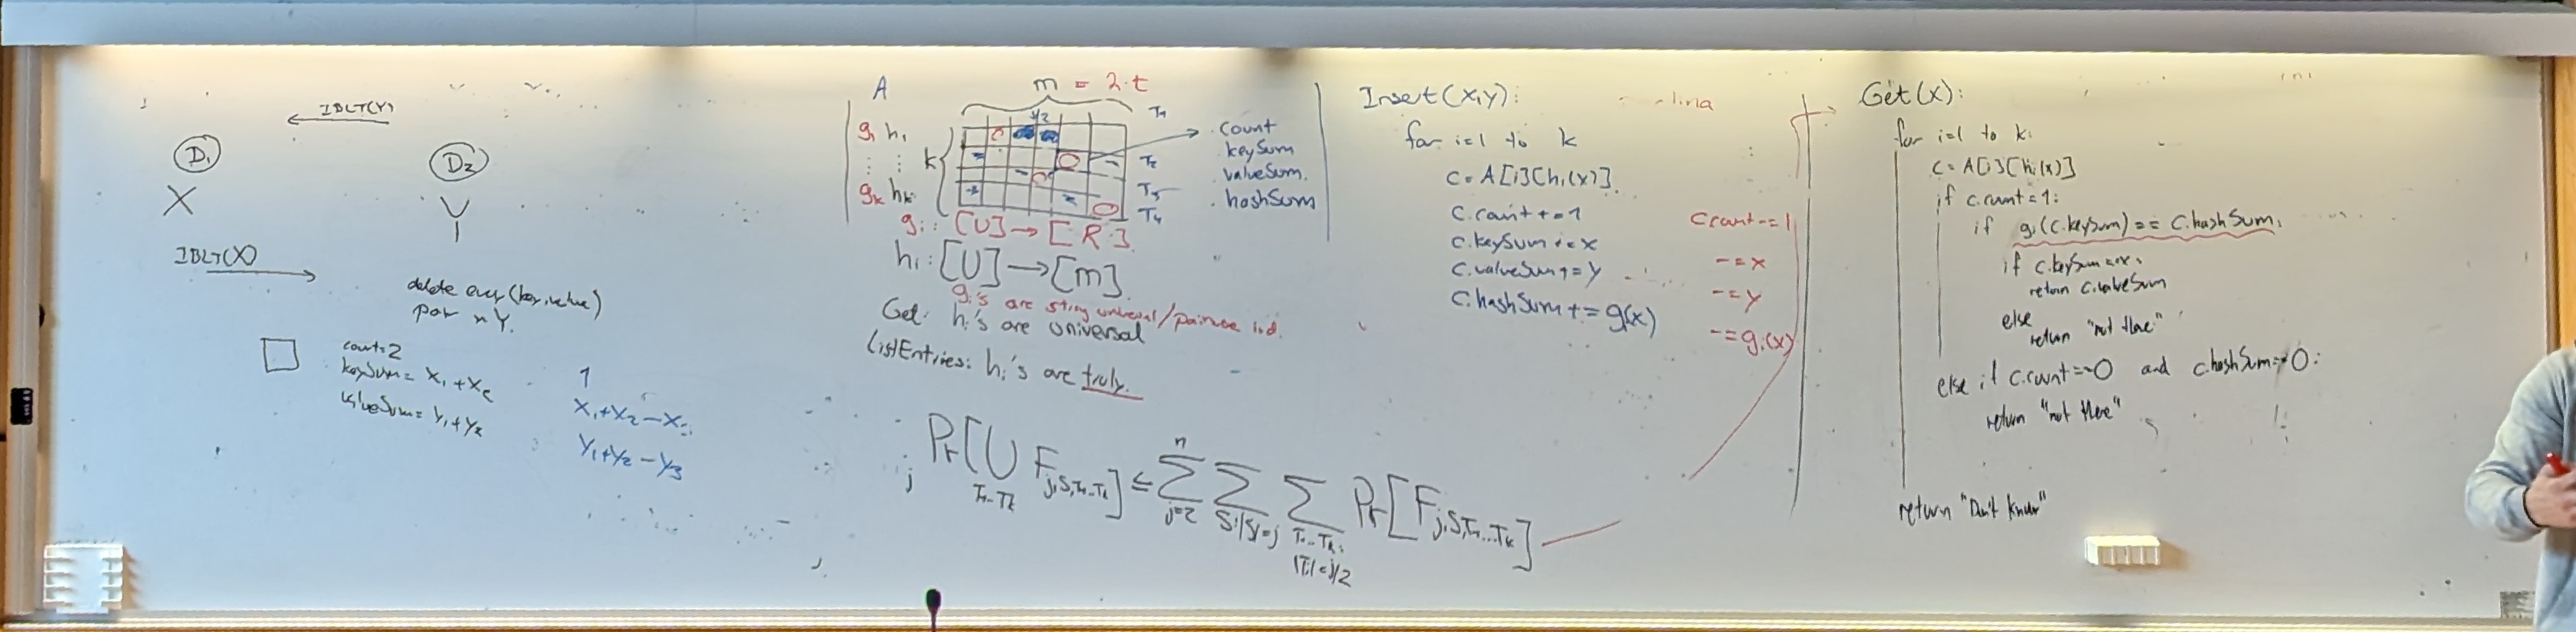 IBLT(Y)
D₁
D₂
X
Y
IBLT(X)
delete every (key, value)
pair in Y.
count=2
keySum= X₁+X₂
valueSum= Y₁+Y₂
1
X₁+X₂-X₃
Y₁+Y₂-Y₃
A
m = 2·t
j/2
g₁ h₁
⋮ ⋮
gₖ hₖ
k
T₁
T₂
T₃
T₄
. count
. keySum
. valueSum
. hashSum
gᵢ: [U]→[R]
hᵢ: [U]→[m]
gᵢ's are strong universal/pairwise ind.
Get: hᵢ's are universal
ListEntries: hᵢ's are truly
j Pr[∪ F_{j,S,T₁..Tₖ}] ≤ Σ Σ Σ Pr[F_{j,S,T₁...Tₖ}]
T₁..Tₖ
n
j=2
S:|S|=j
T₁..Tₖ:
|Tᵢ|≤j/2
Insert(x,y):
for i=1 to k
c= A[i][hᵢ(x)]
c.count +=1
c.keySum += x
c.valueSum += y
c.hashSum += gᵢ(x)
c.count -= 1
-= x
-= y
-= gᵢ(x)
Get(x):
for i=1 to k:
c= A[i][hᵢ(x)]
if c.count=1:
if gᵢ(c.keySum) == c.hashSum:
if c.keySum==x:
return c.valueSum
else
return "not there"
else if c.count==0 and c.hashSum==0:
return "not there"
return "Don't know"